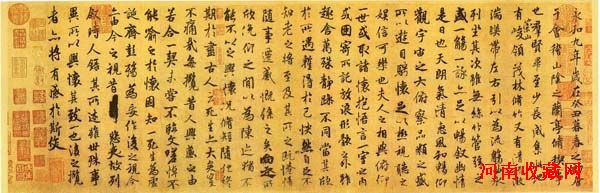 永和九年歲在癸丑暮春之初會
于會稽山陰之蘭亭脩稧事
也群賢畢至少長咸集此地
有崇山峻領茂林脩竹又有清流激
湍暎帶左右引以為流觴曲水
列坐其次雖無絲竹管弦之
盛一觴一詠亦足以暢敘幽情
是日也天朗氣清惠風和暢仰
觀宇宙之大俯察品類之盛
所以遊目騁懷足以極視聽之
娛信可樂也夫人之相與俯仰
一世或取諸懷抱悟言一室之內
或因寄所託放浪形骸之外雖
趣舍萬殊靜躁不同當其欣
於所遇蹔得於己怏然自足不
知老之將至及其所之既惓情
隨事遷感慨係之矣向之所
欣俛仰之閒以為陳迹猶不
能不以之興懷況脩短隨化終
期於盡古人云死生亦大矣豈
不痛哉每攬昔人興感之由
若合一契未嘗不臨文嗟悼不
能喻之於懷固知一死生為虛
誕齊彭殤為妄作後之視今
亦由今之視昔悲夫故列
敘時人錄其所述雖世殊事
異所以興懷其致一也後之攬
者亦將有感於斯文
河南收藏网